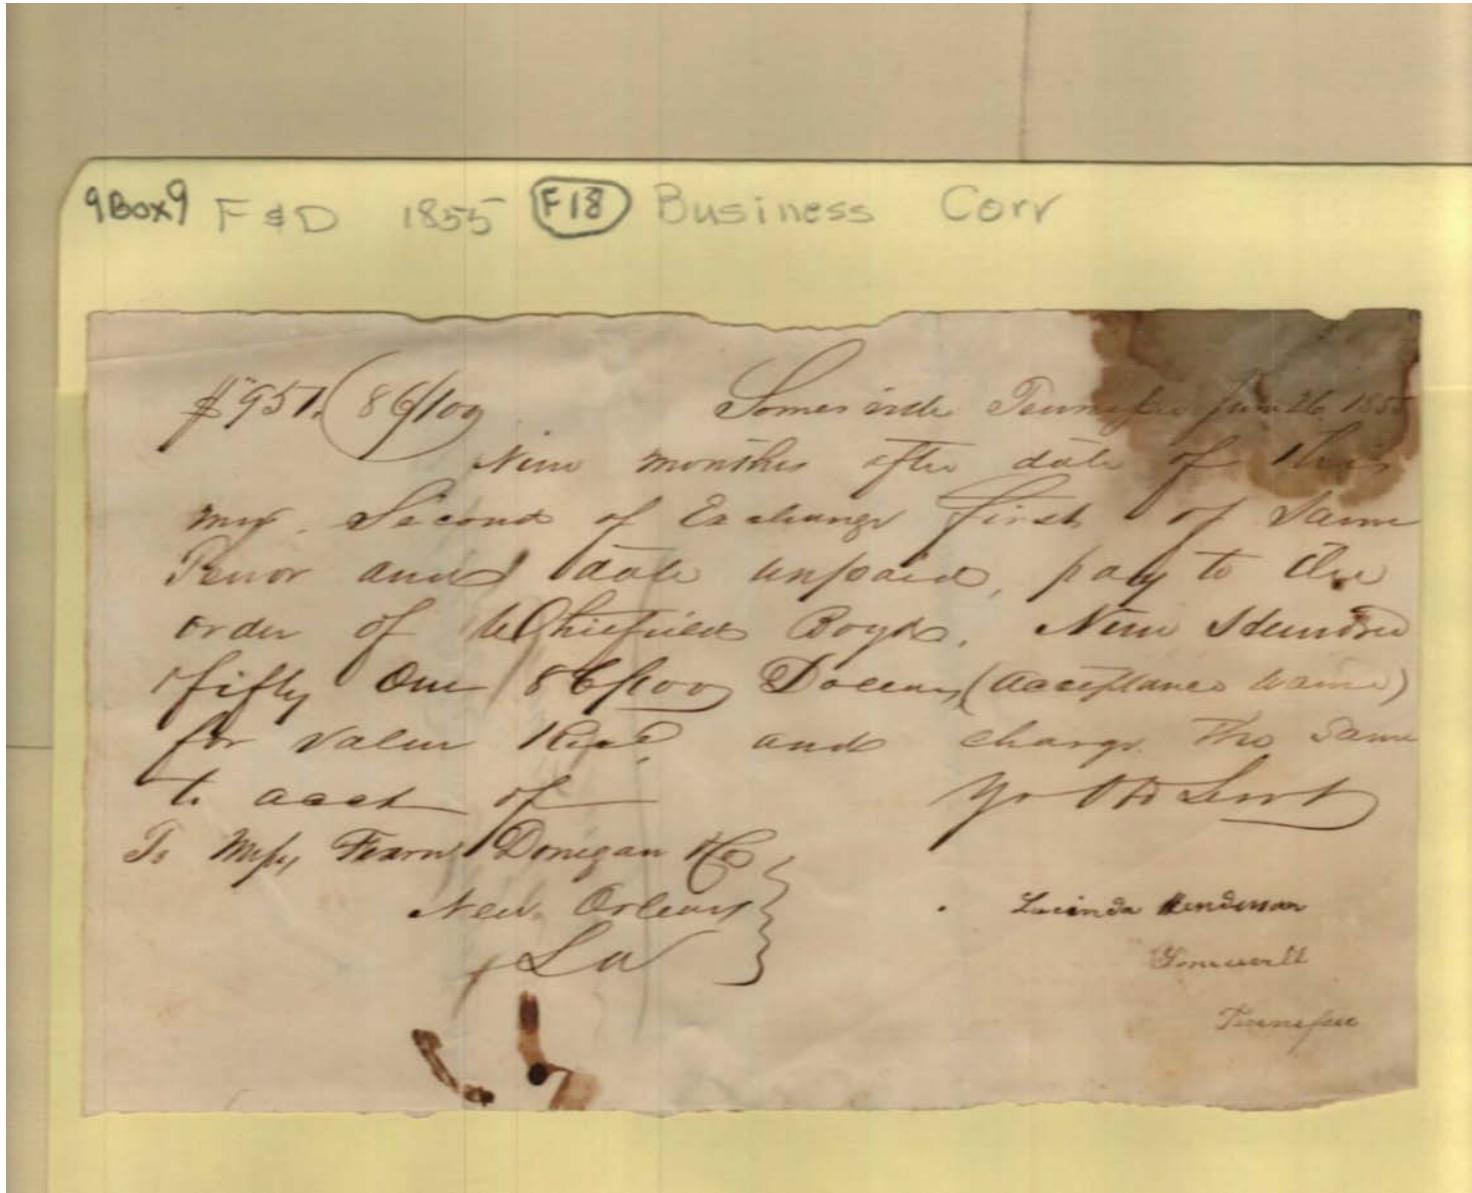 9Box9 F & D 1855 F18 Business Corr
$951. 86/100 Somerville Tennessee June 26, 1855
Nine months after date of this
my Second of Exchange first of Same
Tenor and date unpaid, pay to the
order of Whitfield Boyd, Nine Hundred
fifty One 86/100 Dollars, (acceptance waived)
for value Recd and charge the same
to acct of Yr Obt Servt
To Messrs Fearn Donegan & Co
New Orleans
La
Lucinda Henderson
Somerville
Tennessee